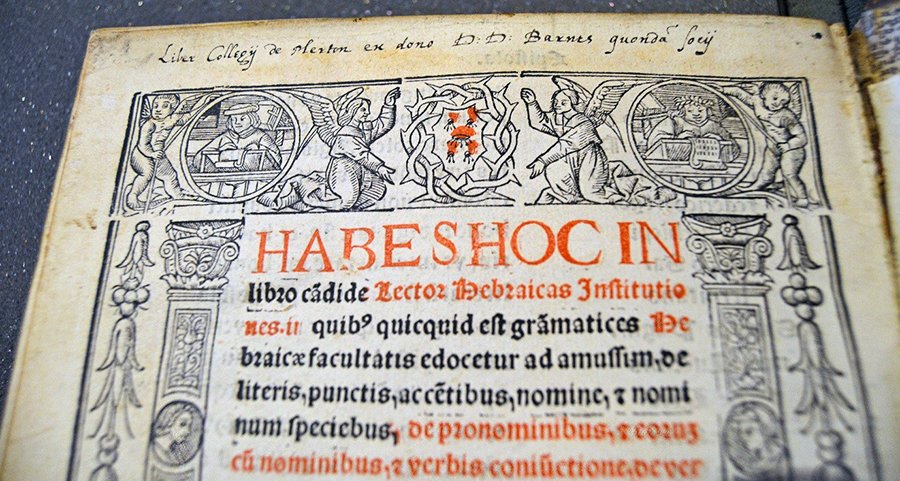 Liber Collegij de Merton ex dono D: D: Barnes quondã socij
HABES HOC IN
libro cãdide Lector Hebraicas Institutio
nes. in quibꝰ quicquid est grãmatices He
braicæ facultatis edocetur ad amussim, de
literis, punctis, accẽtibus, nomine, ⁊ nomi
num speciebus, de pronominibus, ⁊ eorũꝫ
cũ nominibus, ⁊ verbis coniũctione, de ver